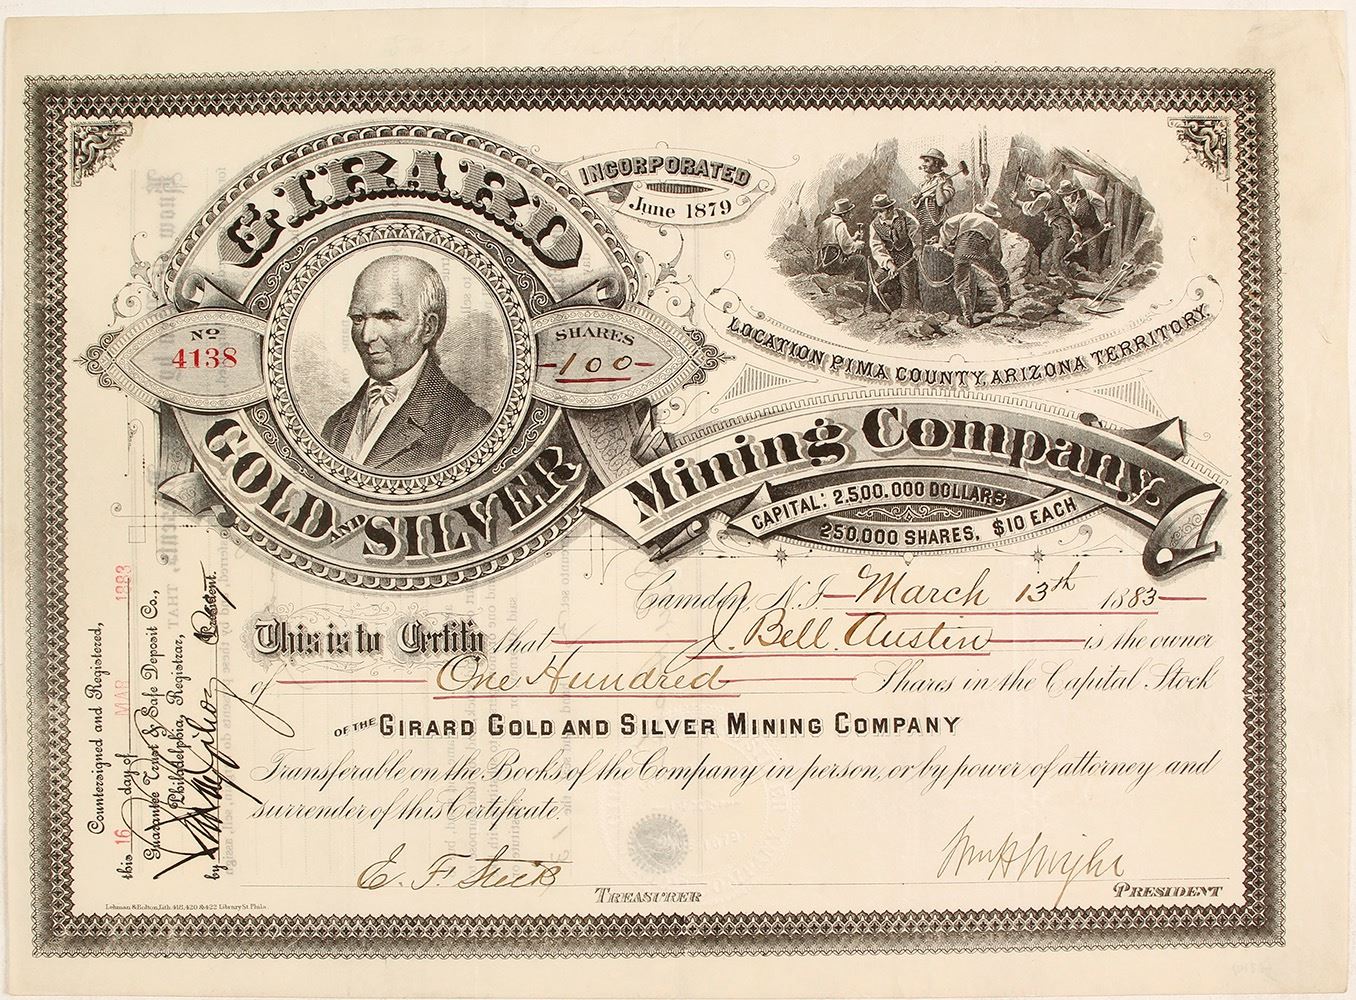 GIRARD
GOLD AND SILVER
Mining Company.
INCORPORATED
June 1879
Nº
4138
SHARES
-100-
LOCATION PIMA COUNTY, ARIZONA TERRITORY.
CAPITAL: 2,500.000 DOLLARS
250.000 SHARES, $10 EACH
Camden, N.J. March 13th 1883
This is to Certify that J. Bell Austin is the owner
of One Hundred Shares in the Capital Stock
OF THE GIRARD GOLD AND SILVER MINING COMPANY
Transferable on the Books of the Company in person, or by power of attorney and
surrender of this Certificate.
TREASURER
Wm H Wright
PRESIDENT
Countersigned and Registered,
this 16 day of MAR 1883
Guarantee Trust & Safe Deposit Co.,
Philadelphia, Registrar,
by President.
Lehman & Bolton, Lith. 418, 420 & 422 Library St. Phila.